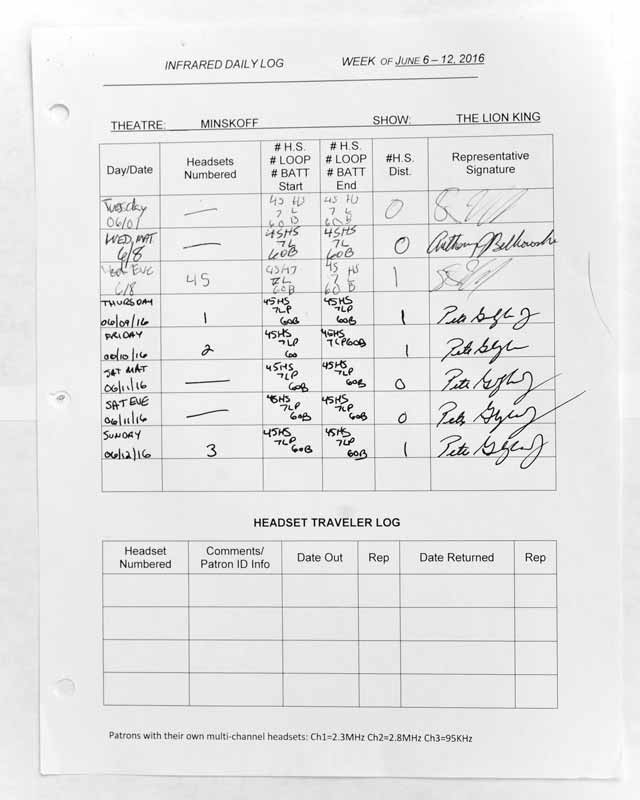 INFRARED DAILY LOG WEEK OF JUNE 6 – 12, 2016
THEATRE: MINSKOFF SHOW: THE LION KING
Day/Date
Headsets
Numbered
# H.S.
# LOOP
# BATT
Start
# H.S.
# LOOP
# BATT
End
#H.S.
Dist.
Representative
Signature
Tuesday
06/0
—
45 HS
7 L
60 B
45 HS
7 L
60 B
0
WED, MAT
6/8
—
45HS
7L
60B
45HS
7L
60B
0
Anthony
EVE
6/8
45
7L
60B
45 HS
7 L
60 B
1
THURSDAY
06/09/16
1
45HS
7LP
60B
45HS
7LP
60B
1
Pete
FRIDAY
06/10/16
2
45HS
7LP
60
45HS
7LP60B
1
Pete
SAT MAT
06/11/16
—
45HS
7LP
60B
45HS
7LP
60B
0
Pete
SAT EVE
06/11/16
—
45HS
7LP
60B
45HS
7LP
60B
0
Pete
SUNDAY
06/12/16
3
45HS
7LP
60B
45HS
7LP
60B
1
Pete
HEADSET TRAVELER LOG
Headset
Numbered
Comments/
Patron ID Info
Date Out
Rep
Date Returned
Rep
Patrons with their own multi-channel headsets: Ch1=2.3MHz Ch2=2.8MHz Ch3=95KHz